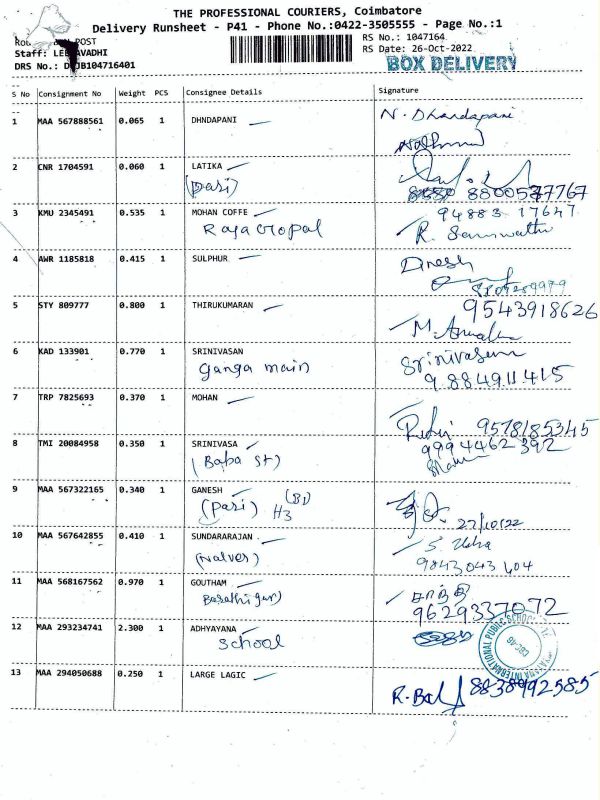 THE PROFESSIONAL COURIERS, Coimbatore
Delivery Runsheet - P41 - Phone No.:0422-3505555 - Page No.:1
POST
RS No.: 1047164
Staff:
RS Date: 26-Oct-2022
DRS No.:
BOX DELIVERY
S No Consignment No Weight PCS Consignee Details Signature
1 MAA 567888561 0.065 1 DHNDAPANI N. Dhandapani
2 CNR 1704591 0.060 1 LATIKA
(Dasi) 8800577767
3 KMU 2345491 0.535 1 MOHAN COFFE 94883 17647
Raja Gopal R. Saraswathi
4 AWR 1185818 0.415 1 SULPHUR Dinesh
5 STY 809777 0.800 1 THIRUKUMARAN 9543918626
6 KAD 133901 0.770 1 SRINIVASAN Srinivasan
Ganga main 9884911415
7 TRP 7825693 0.370 1 MOHAN
9578185345
8 TMI 20084958 0.350 1 SRINIVASA 9994462392
(Baba St)
9 MAA 567322165 0.340 1 GANESH
(Dasi) (B1) H3 27/10/22
10 MAA 567642855 0.410 1 SUNDARARAJAN S. Usha
(Nalver) 9843043404
11 MAA 568167562 0.970 1 GOUTHAM சாந்தி
9629337072
12 MAA 293234741 2.300 1 ADHYAYANA
School
INTERNATIONAL PUBLIC SCHOOL
CBE-46
13 MAA 294050688 0.250 1 LARGE LAGIC R. Bal 8838992585